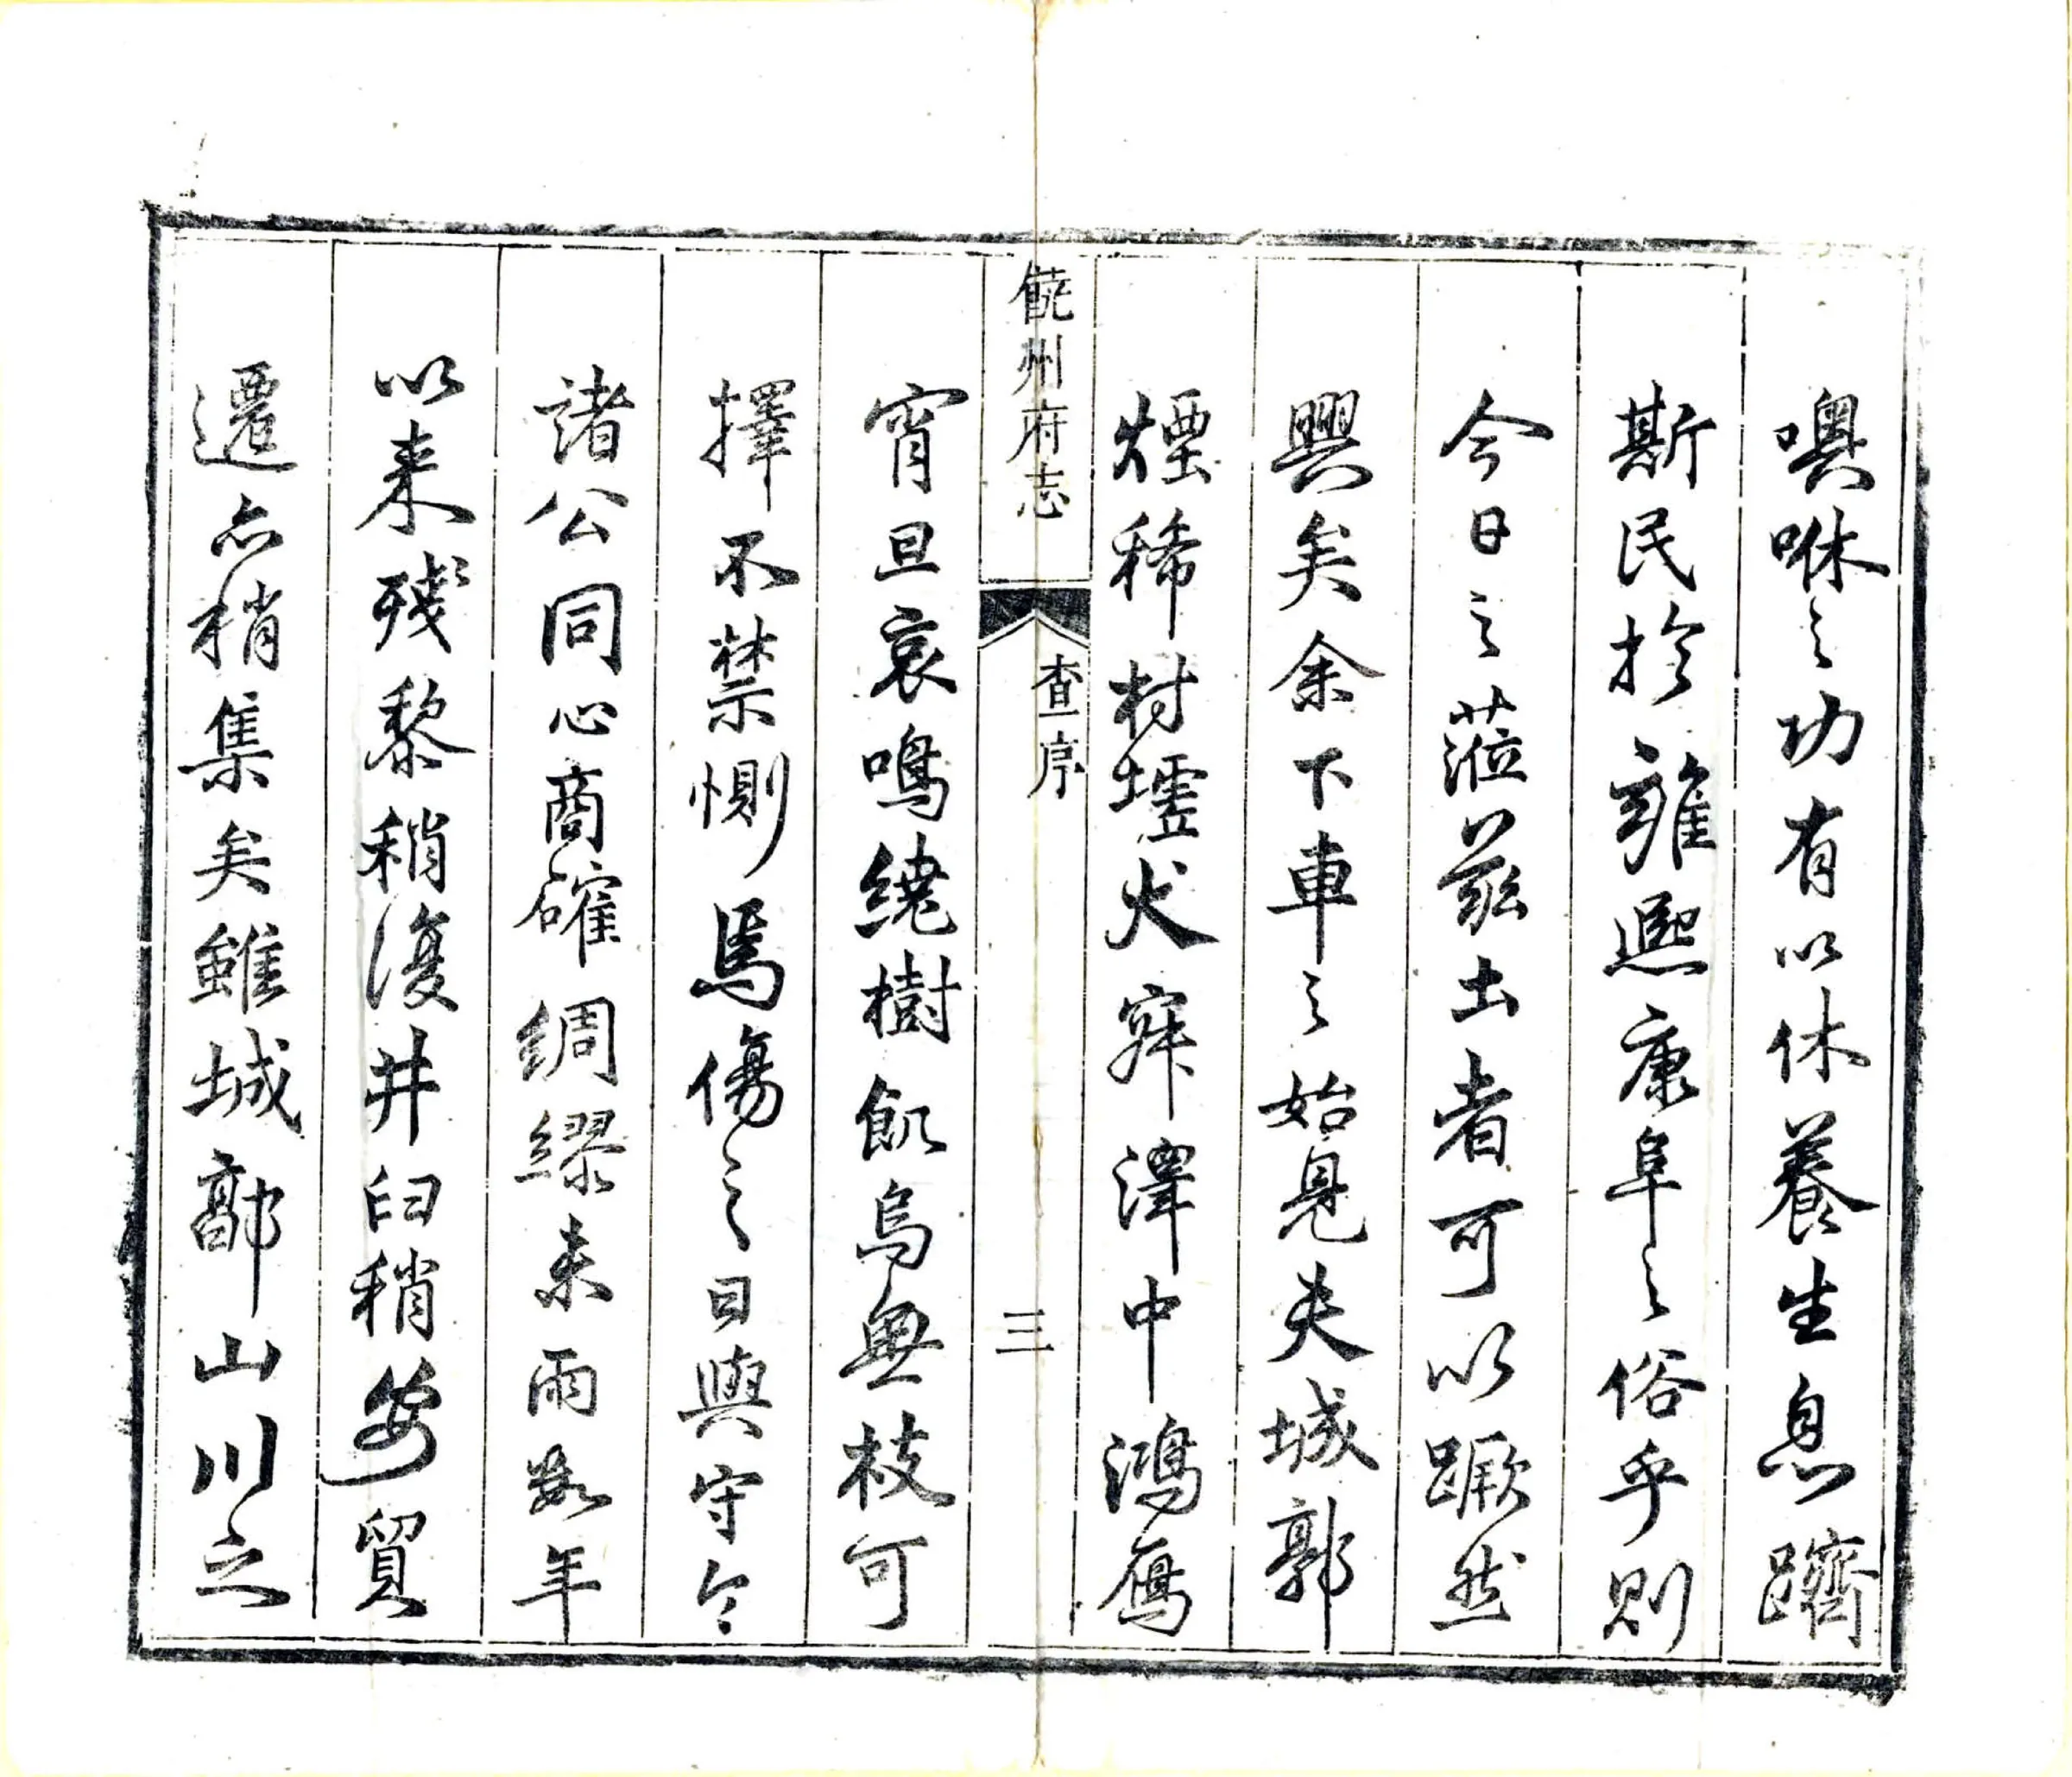 噢咻之功有以休養生息躋
斯民於雍熙康阜之俗乎則
今日之蒞茲土者可以蹶然
興矣余下車之始見夫城郭
煙稀村墟犬寐澤中鴻雁
饒州府志
查序
三
宵旦哀鳴繞樹飢烏無枝可
擇不禁惻焉傷之日與守令
諸公同心商確綢繆未雨數年
以来殘黎稍復井臼稍安貿
遷亦稍集矣雖城郭山川之